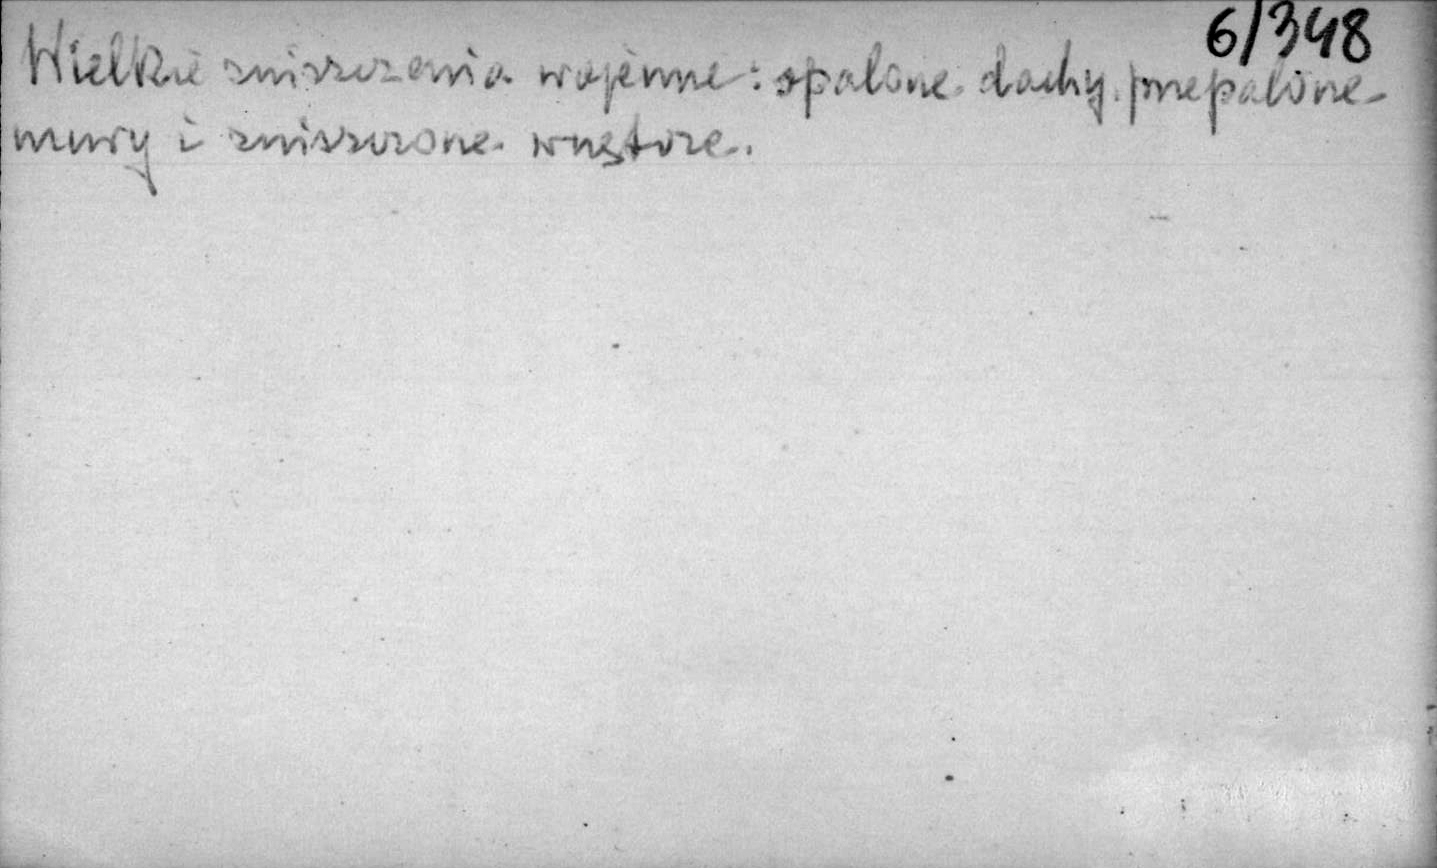 6/348
Wielkie zniszczenia wojenne: spalone dachy, przepalone
mury i zniszczone wnętrze.